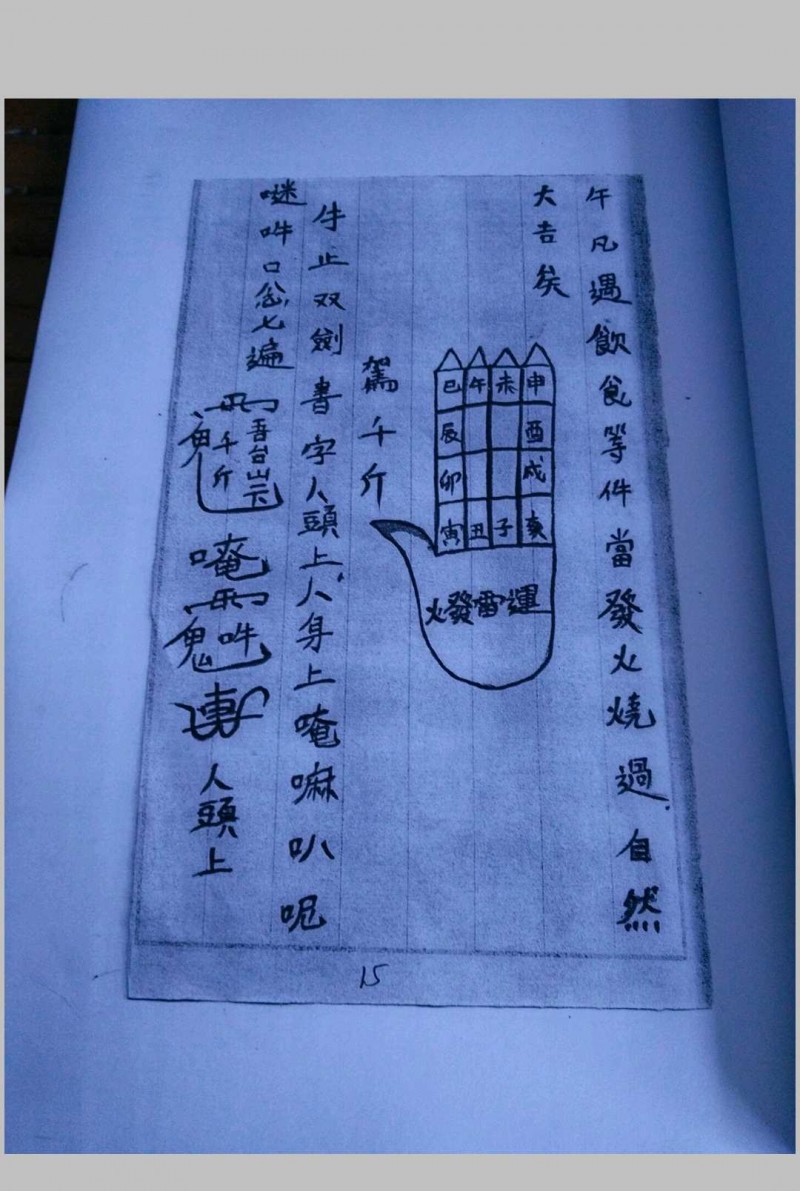 午凡遇飲食等件當發火燒過自然
大吉矣
申未午巳
酉辰
戌卯
亥子丑寅
運雷發火
駕千斤
牛止双劍書字人頭上人身上唵嘛叭呢
嘧吽口
七遍
吾台
千斤
鬼
唵
吽
鬼
人頭上
15